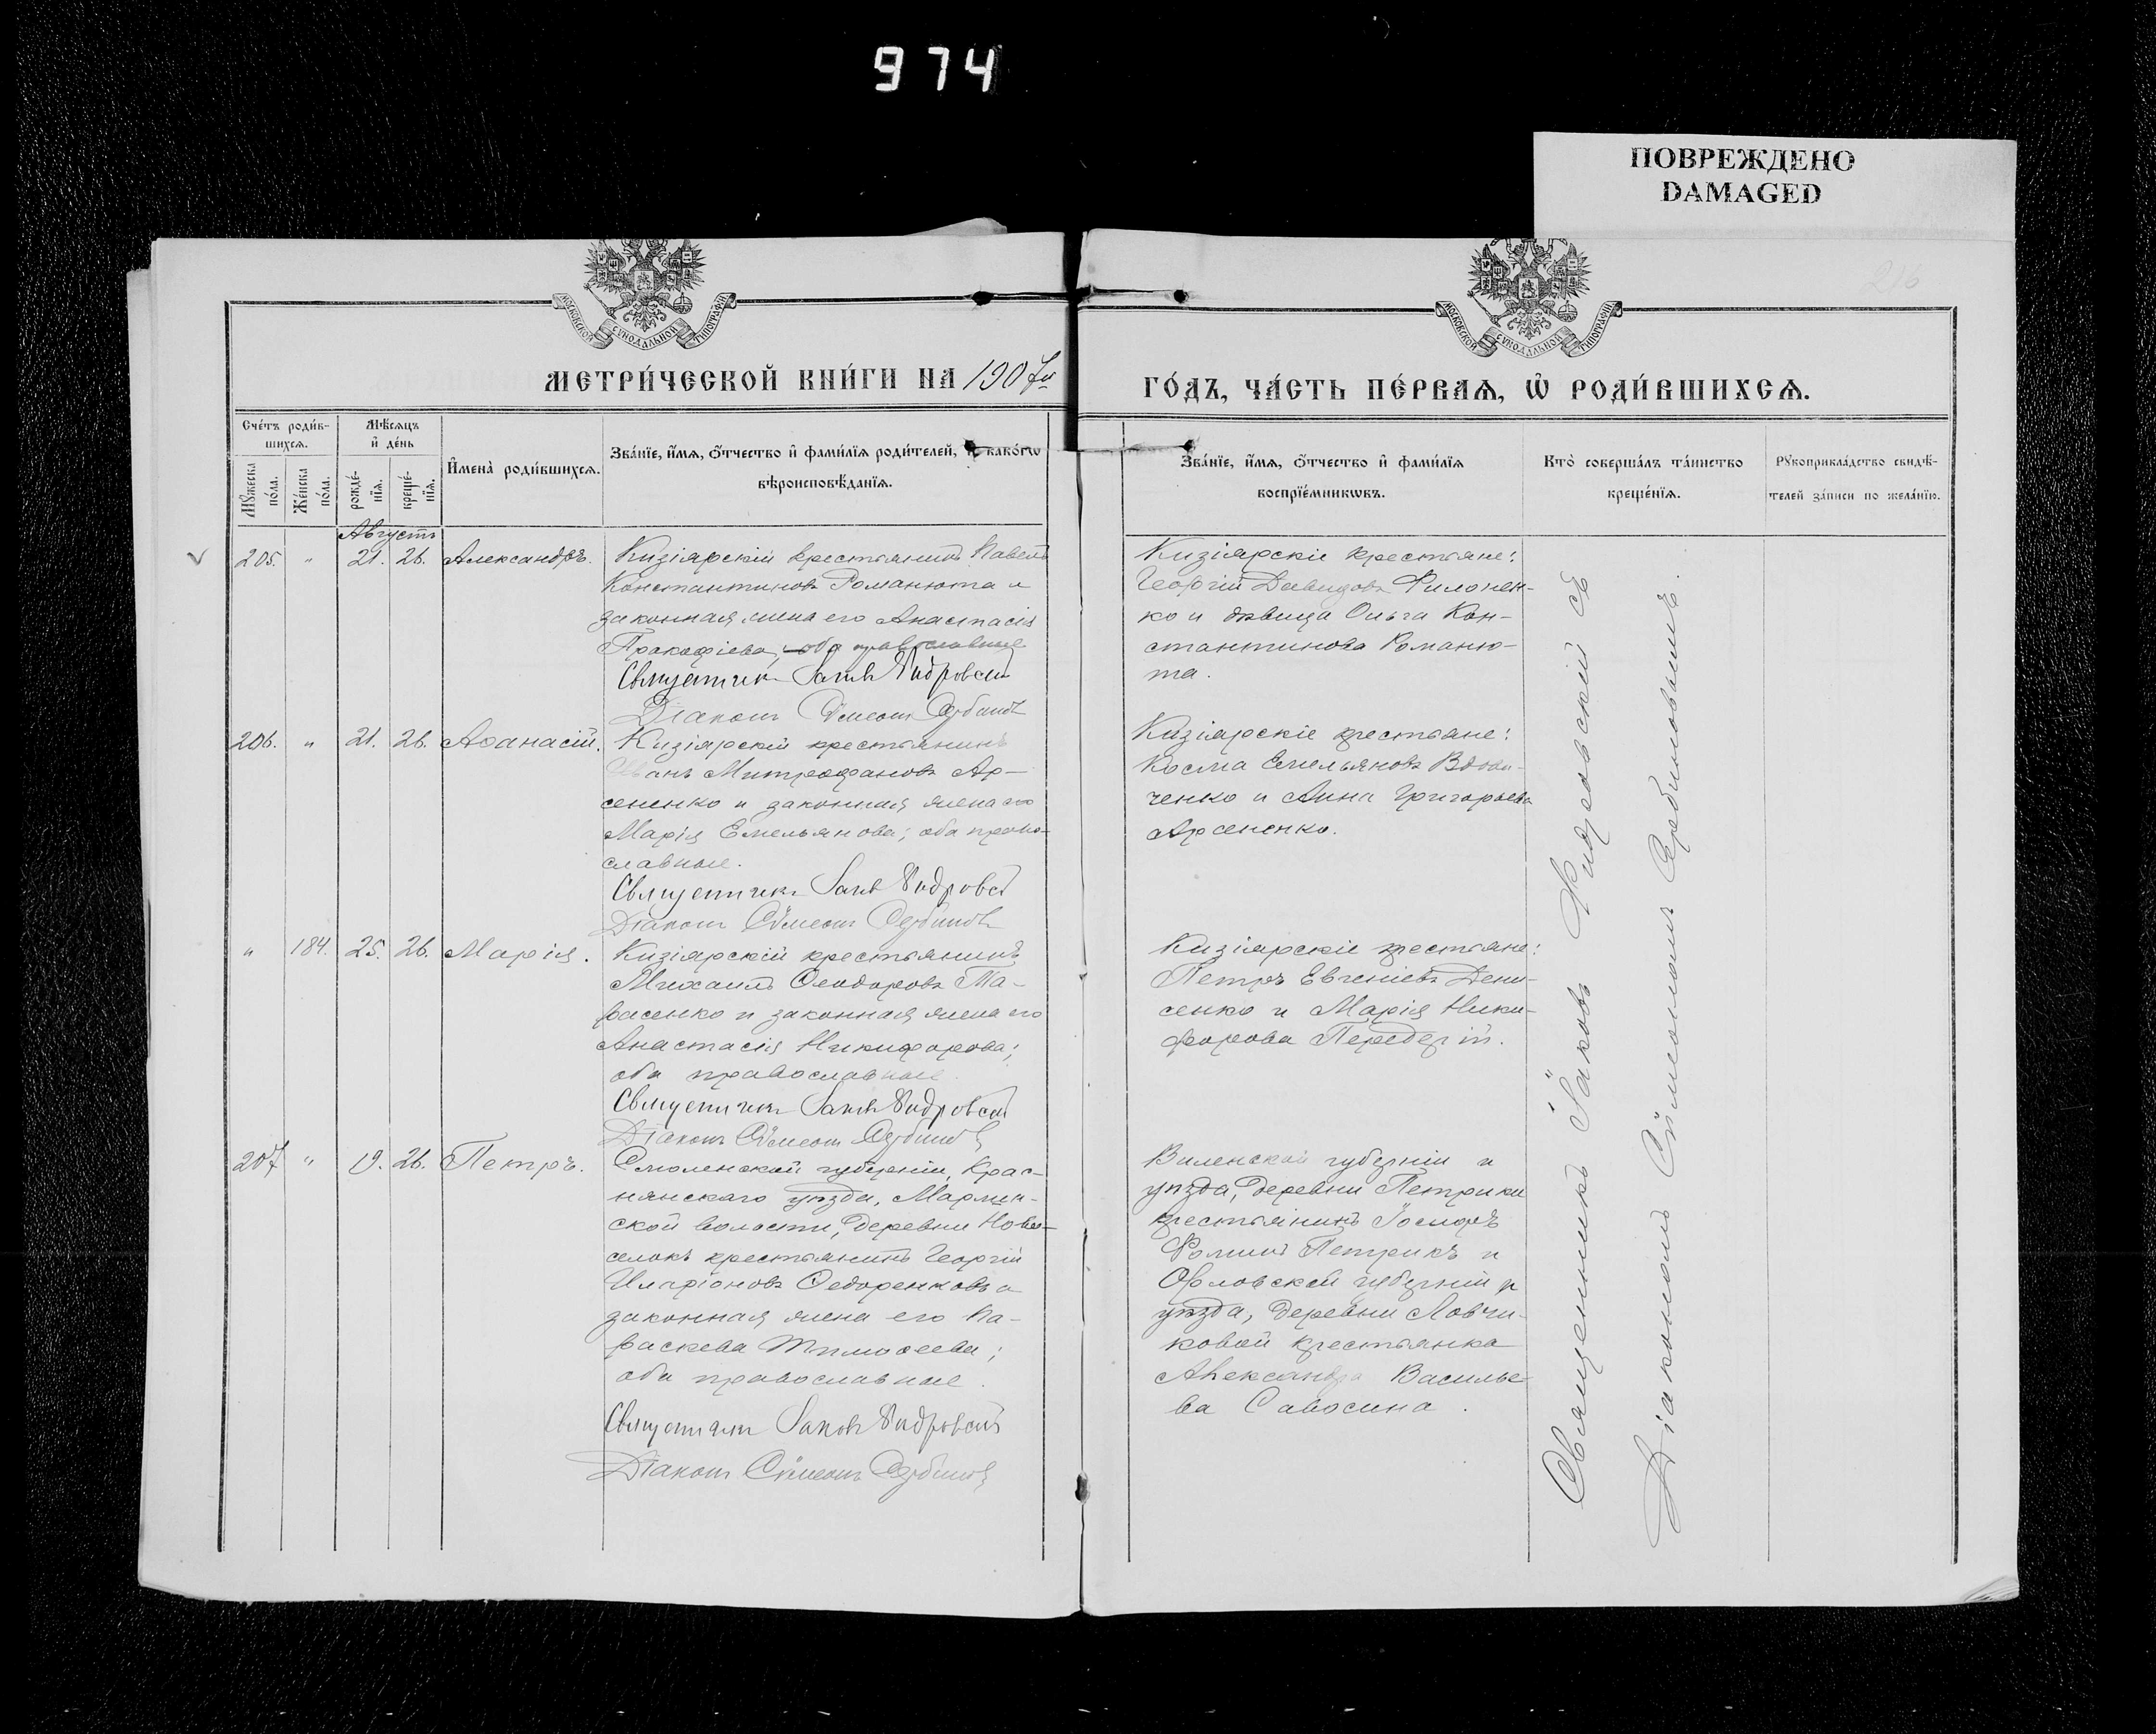 974
ПОВРЕЖДЕНО
DAMAGED
МОСКОВСКОЙ СѴНОДАЛЬНОЙ ТИПОГРАФІИ
МОСКОВСКОЙ СѴНОДАЛЬНОЙ ТИПОГРАФІИ
МЕТРИ́ЧЕСКОЙ КНИ́ГИ НА 1907й
ГО́ДЪ, ЧА́СТЬ ПЕ́РВАѦ, Ѡ҆ РОДИ́ВШИХСѦ.
Сче́тъ роди́в-
шихсѧ.
Мѣ́сѧцъ
и҆ де́нь
Мꙋ́жеска
по́ла.
Же́нска
по́ла.
рожде́-
нїѧ.
креще́-
нїѧ.
И҆мена̀ роди́вшихсѧ.
Зва́нїе, и҆́мѧ, ѻ҆́тчество и҆ фами́лїѧ роди́телей, и҆ како́гѡ
вѣроисповѣ́данїѧ.
Зва́нїе, и҆́мѧ, ѻ҆́тчество и҆ фами́лїѧ
воспрїе́мникѡвъ.
Кто̀ соверша́лъ та́инство
креще́нїѧ.
Рꙋкоприкла́дство свидѣ́-
телей за́писи по жела́нїю.
Августъ
205. " 21. 26. Александръ.
Кизіярскій крестьянинъ Павелъ
Константиновъ Романюта и
законная жена его Анастасія
Прокофіева, оба православные
Священникъ Іаковъ Фидровскій
Діаконъ Сѵмеонъ
Кизіярскіе крестьяне:
Георгій Давидовъ Филонен-
ко и дѣвица Ольга Кон-
стантинова Романю-
та.
206. " 21. 26. Аѳанасій.
Кизіярскій крестьянинъ
Иванъ Митрофановъ Ар-
сененко и законная жена его
Марія Емельянова; оба право-
славные.
Священникъ Іаковъ Фидровскій
Діаконъ Сѵмеонъ
Кизіярскіе крестьяне:
Косма Емельяновъ Вдови-
ченко и Анна Григорьева
Арсененко.
" 184. 25. 26. Марія.
Кизіярскій крестьянинъ
Михаилъ Ѳеодоровъ Та-
расенко и законная жена его
Анастасія Никифорова;
оба православные.
Священникъ Іаковъ Фидровскій
Діаконъ Сѵмеонъ
Кизіярскіе крестьяне:
Петръ Евгеніевъ Дени-
сенко и Марія Ники-
форова Передерій.
207 " 19. 26. Петръ.
Смоленской губерніи, Крас-
нянскаго уѣзда,
волости, деревни Ново-
селокъ крестьянинъ Георгій
Иларіоновъ Ѳедоренковъ и
законная жена его Па-
раскева Тимоѳеева;
оба православные.
Священникъ Іаковъ Фидровскій
Діаконъ Сѵмеонъ
Виленской губерніи и
уѣзда, деревни Петрики
крестьянинъ Іосифъ
Петрикъ и
Орловской губерніи и
уѣзда, деревни Ловчи-
ковой крестьянка
Александра Василье-
ва Савосина.
Священникъ Іаковъ Фидровскій съ
Діакономъ Сѵмеономъ